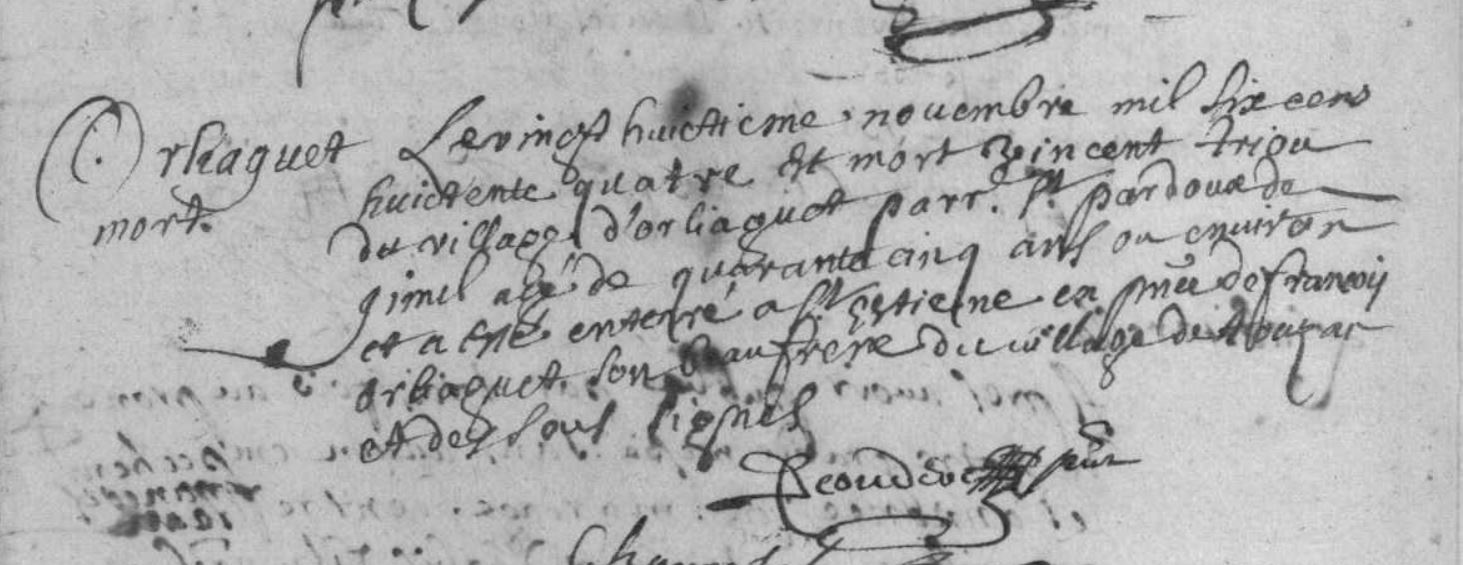 Orliaguet
mort.
Le vingt huictieme novembre mil six cens
huictente quatre est mort Vincent triou
du village d'orliaguet parr. St pardoux de
gimel agé de quarante cinq ans ou environ
et a esté enterré a St Estiene en pnce de francois
orliaguet son beaufrere du village de
et des sous signes